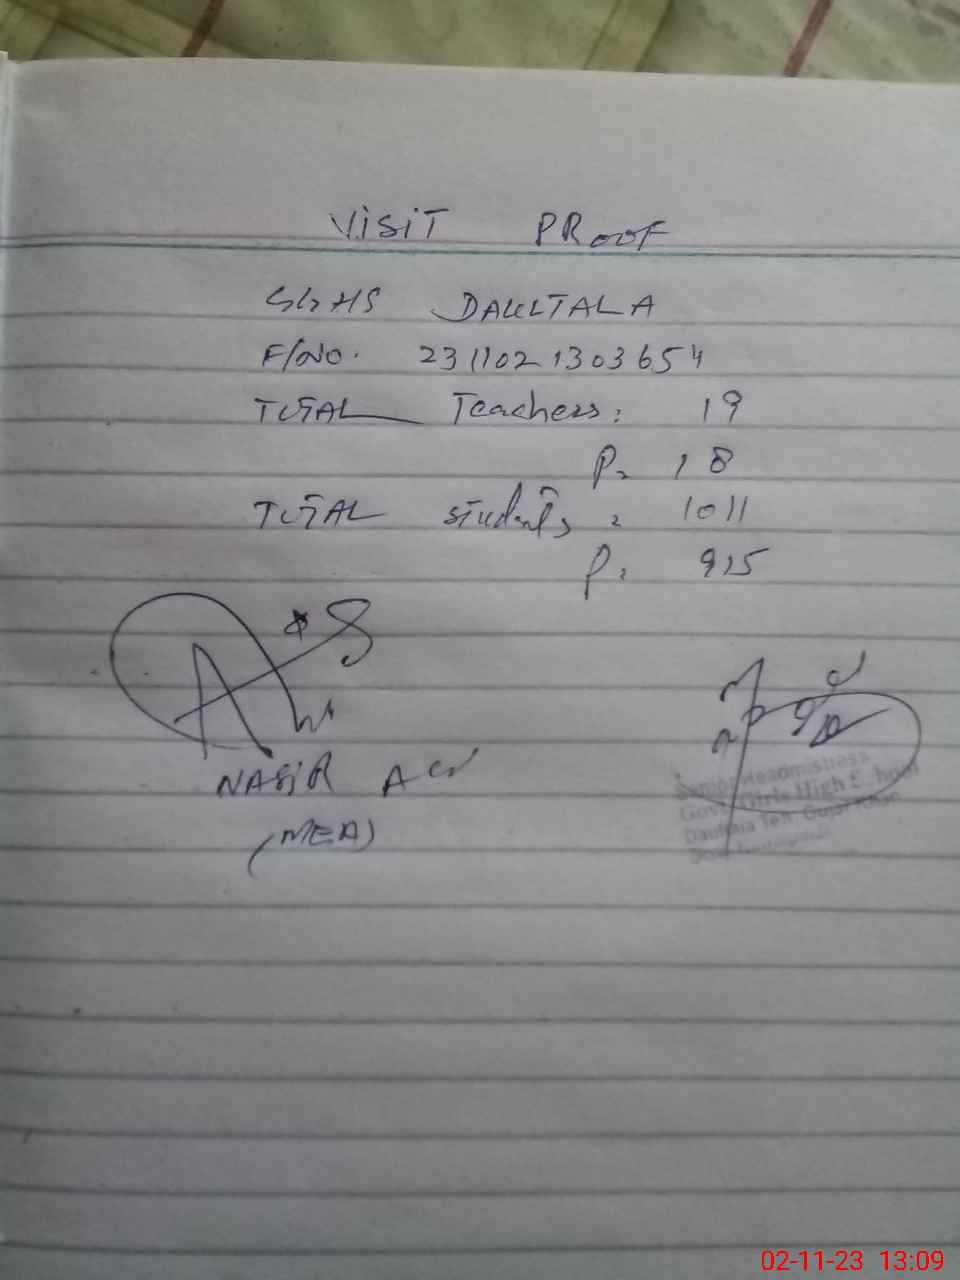 VISIT PROOF
GGHS DAULTALA
F/No. 231102 1303654
TOTAL Teachers: 19
P= 18
TOTAL students = 1011
P= 915
NASIR ALI
(MEA)
Senior Headmistress
Govt Girls High School
Daultala Teh. Gujar Khan
02-11-23 13:09